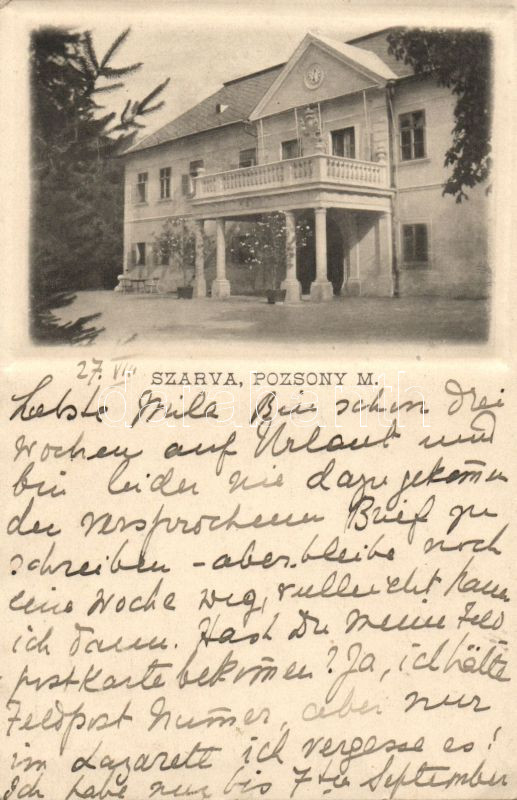 27. VIII.
SZARVA, POZSONY M.
Liebste Mila Bin schon drei
Wochen auf Urlaub und
bin leider nie dazu gekommen
den versprochenen Brief zu
schreiben – aber bleibe noch
eine Woche weg, vielleicht kann
ich dann. Hast Du meine Feld
postkarte bekommen? Ja, ich hätte
Feldpost Numer, aber nur
im Lazarett ich vergesse es!
Ich habe nur bis 7te September